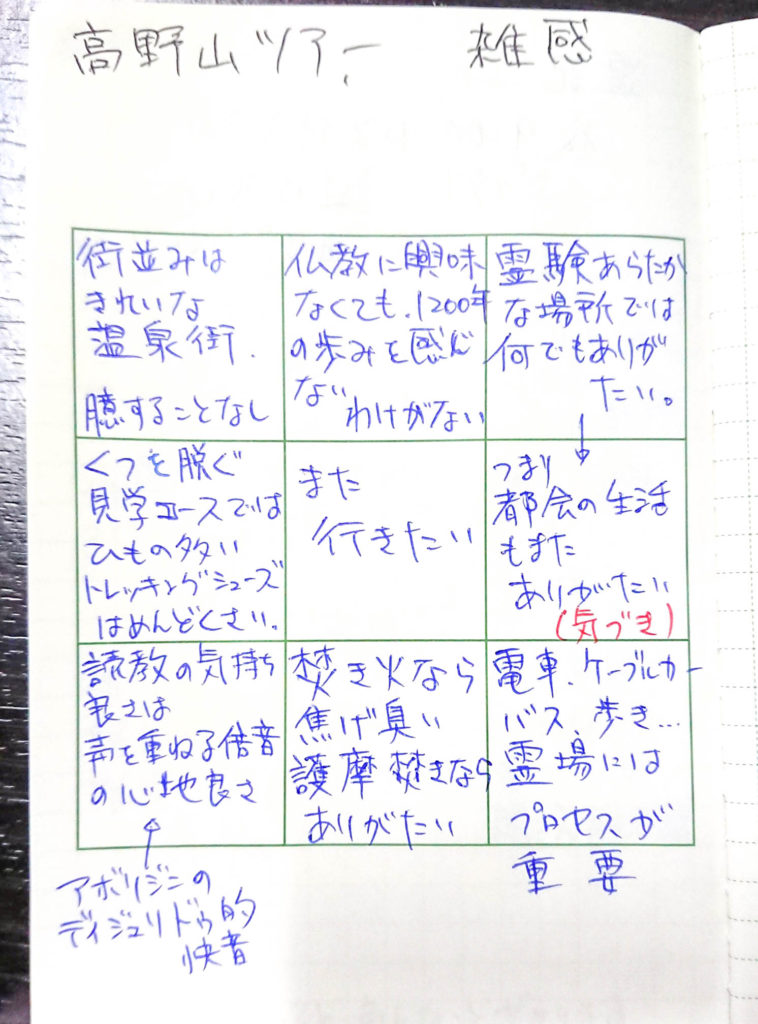 高野山ツアー 雑感
街並みは
きれいな
温泉街.
臆することなし
仏教に興味
なくても、1200年
の歩みを感じ
ない
わけがない
霊験あらたか
な場所では
何でもありが
たい。
↓
くつを脱ぐ
見学コースでは
ひもの多い
トレッキングシューズ
はめんどくさい。
また
行きたい
つまり
都会の生活
もまた
ありがたい
(気づき)
読教の気持ち
良さは
声を重ねる倍音
の心地良さ
焚き火なら
焦げ臭い
護摩焚きなら
ありがたい
電車、ケーブルカー
バス、歩き…
霊場には
プロセスが
重要
↑
アボリジニの
ディジュリドゥ的
快音